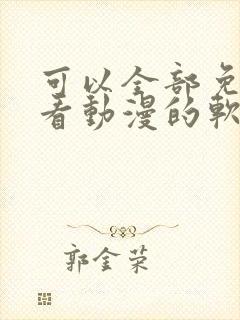 可以全部免
看動漫的軟
郭金荣